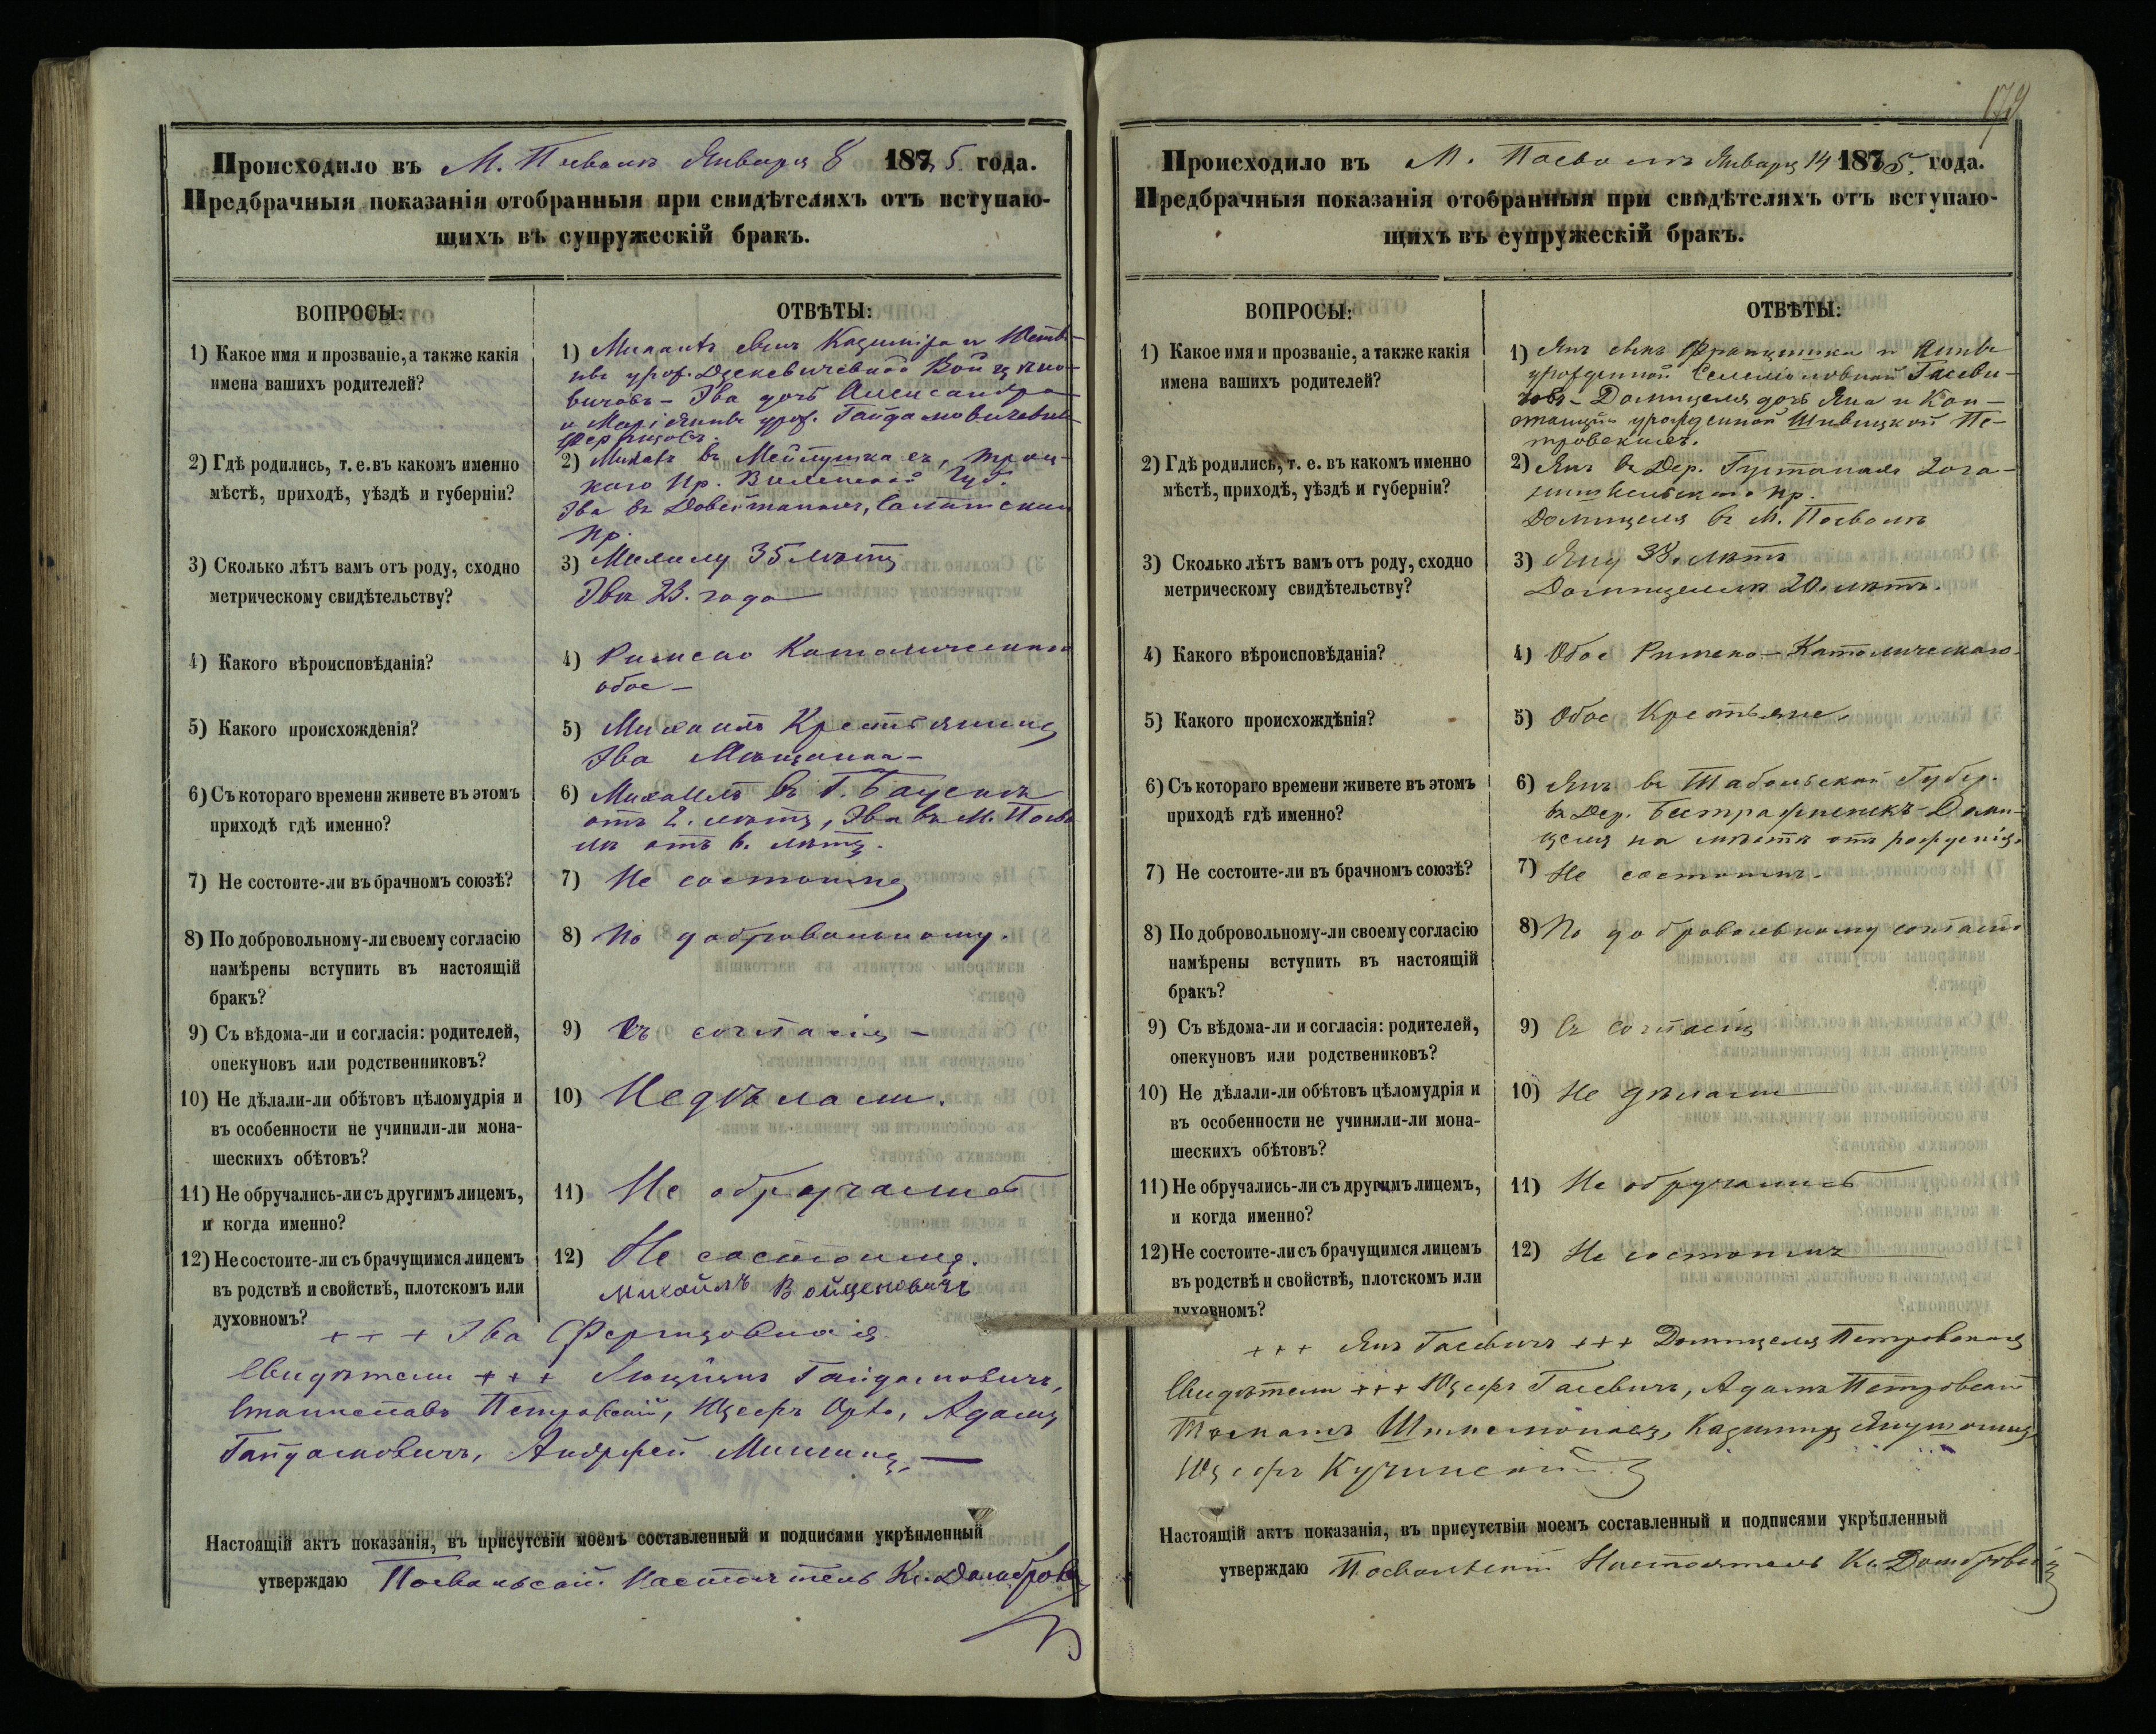 Происходило въ М. Посволь Января 8 1875 года.
Предбрачныя показанія отобранныя при свидѣтеляхъ отъ вступаю-
щихъ въ супружескій бракъ.
ВОПРОСЫ:
ОТВѢТЫ:
1) Какое имя и прозваніе, а также какія
имена вашихъ родителей?
1) сынъ Казиміра и
урож.
вичовъ – Эва дочь Александра
и урож.
2) Гдѣ родились, т. е. въ какомъ именно
мѣстѣ, приходѣ, уѣздѣ и губерніи?
2) въ
каго пр. Виленской Губ.
Эва въ
пр.
3) Сколько лѣтъ вамъ отъ роду, сходно
метрическому свидѣтельству?
3) 35 лѣтъ
Эва 23. года
4) Какого вѣроисповѣданія?
4) Римско Католическаго
обое –
5) Какого происхожденія?
5) Михаилъ Крестьянинъ
Эва Мѣщанка –
6) Съ котораго времени живете въ этомъ
приходѣ гдѣ именно?
6) Михаилъ въ Г. Бауске
отъ 2. лѣтъ, Эва въ М. Посво
лѣ отъ 6. лѣтъ.
7) Не состоите-ли въ брачномъ союзѣ?
7) Не состоимъ
8) По добровольному-ли своему согласію
намѣрены вступить въ настоящій
бракъ?
8) По добровольному.
9) Съ вѣдома-ли и согласія: родителей,
опекуновъ или родственниковъ?
9) Съ согласія –
10) Не дѣлали-ли обѣтовъ цѣломудрія и
въ особенности не учинили-ли мона-
шескихъ обѣтовъ?
10) Недѣлали.
11) Не обручались-ли съ другимъ лицемъ,
и когда именно?
11) Не обручались
12) Не состоите-ли съ брачущимся лицемъ
въ родствѣ и свойствѣ, плотскомъ или
духовномъ?
12) Не состоимъ.
Михайлъ Войцеховичъ
+ + + Эва
Свидѣтели + + + Гайдамовичъ,
Станиславъ Петровскій, Юзефъ Адамъ
Гайдамовичъ, Андржей
Настоящій актъ показанія, въ присутсвіи моемъ составленный и подписями укрѣпленный
утверждаю Посвольскій Настоятель Кс. Домбровс
179
Происходило въ М. Посволь Января 14 1875. года.
Предбрачныя показанія отобранныя при свидѣтеляхъ отъ вступаю-
щихъ въ супружескій бракъ.
ВОПРОСЫ:
ОТВѢТЫ:
1) Какое имя и прозваніе, а также какія
имена вашихъ родителей?
1) Янъ сынъ Францишка и Анны
урожденной Гасеви-
човъ – Домицеля дочь Яна и Кон-
станціи урожденной Пе-
тровскихъ.
2) Гдѣ родились, т. е. въ какомъ именно
мѣстѣ, приходѣ, уѣздѣ и губерніи?
2) Янъ въ Дер.
пр.
Домицеля въ М. Посволь
3) Сколько лѣтъ вамъ отъ роду, сходно
метрическому свидѣтельству?
3) Яну 38. лѣтъ
Домицелли 20. лѣтъ.
4) Какого вѣроисповѣданія?
4) Обое Римско–Католическаго
5) Какого происхождѣнія?
5) Обое Крестьяне
6) Съ котораго времени живете въ этомъ
приходѣ гдѣ именно?
6) Янъ въ Тобольской Губер.
въ Дер. Доми-
целя на мѣстѣ отъ рожденія.
7) Не состоите-ли въ брачномъ союзѣ?
7) Не состоимъ.
8) По добровольному-ли своему согласію
намѣрены вступить въ настоящій
бракъ?
8) По добровольному согласію
9) Съ вѣдома-ли и согласія: родителей,
опекуновъ или родствениковъ?
9) Съ согласія
10) Не дѣлали-ли обѣтовъ цѣломудрія и
въ особенности не учинили-ли мона-
шескихъ обѣтовъ?
10) Не дѣлали
11) Не обручались-ли съ другимъ лицемъ,
и когда именно?
11) Не обручались
12) Не состоите-ли съ брачущимся лицемъ
въ родствѣ и свойствѣ, плотскомъ или
духовномъ?
12) Не состоимъ
+ + + Янъ Гасевичъ + + + Домицеля Петровская
Свидѣтели + + + Юзефъ Гасевичъ, Адамъ Петровскій
Казимиръ
Юзефъ Кучинскій
Настоящій актъ показанія, въ присутствіи моемъ составленный и подписями укрѣпленный
утверждаю Посвольскій Настоятель Кс. Домбровскій